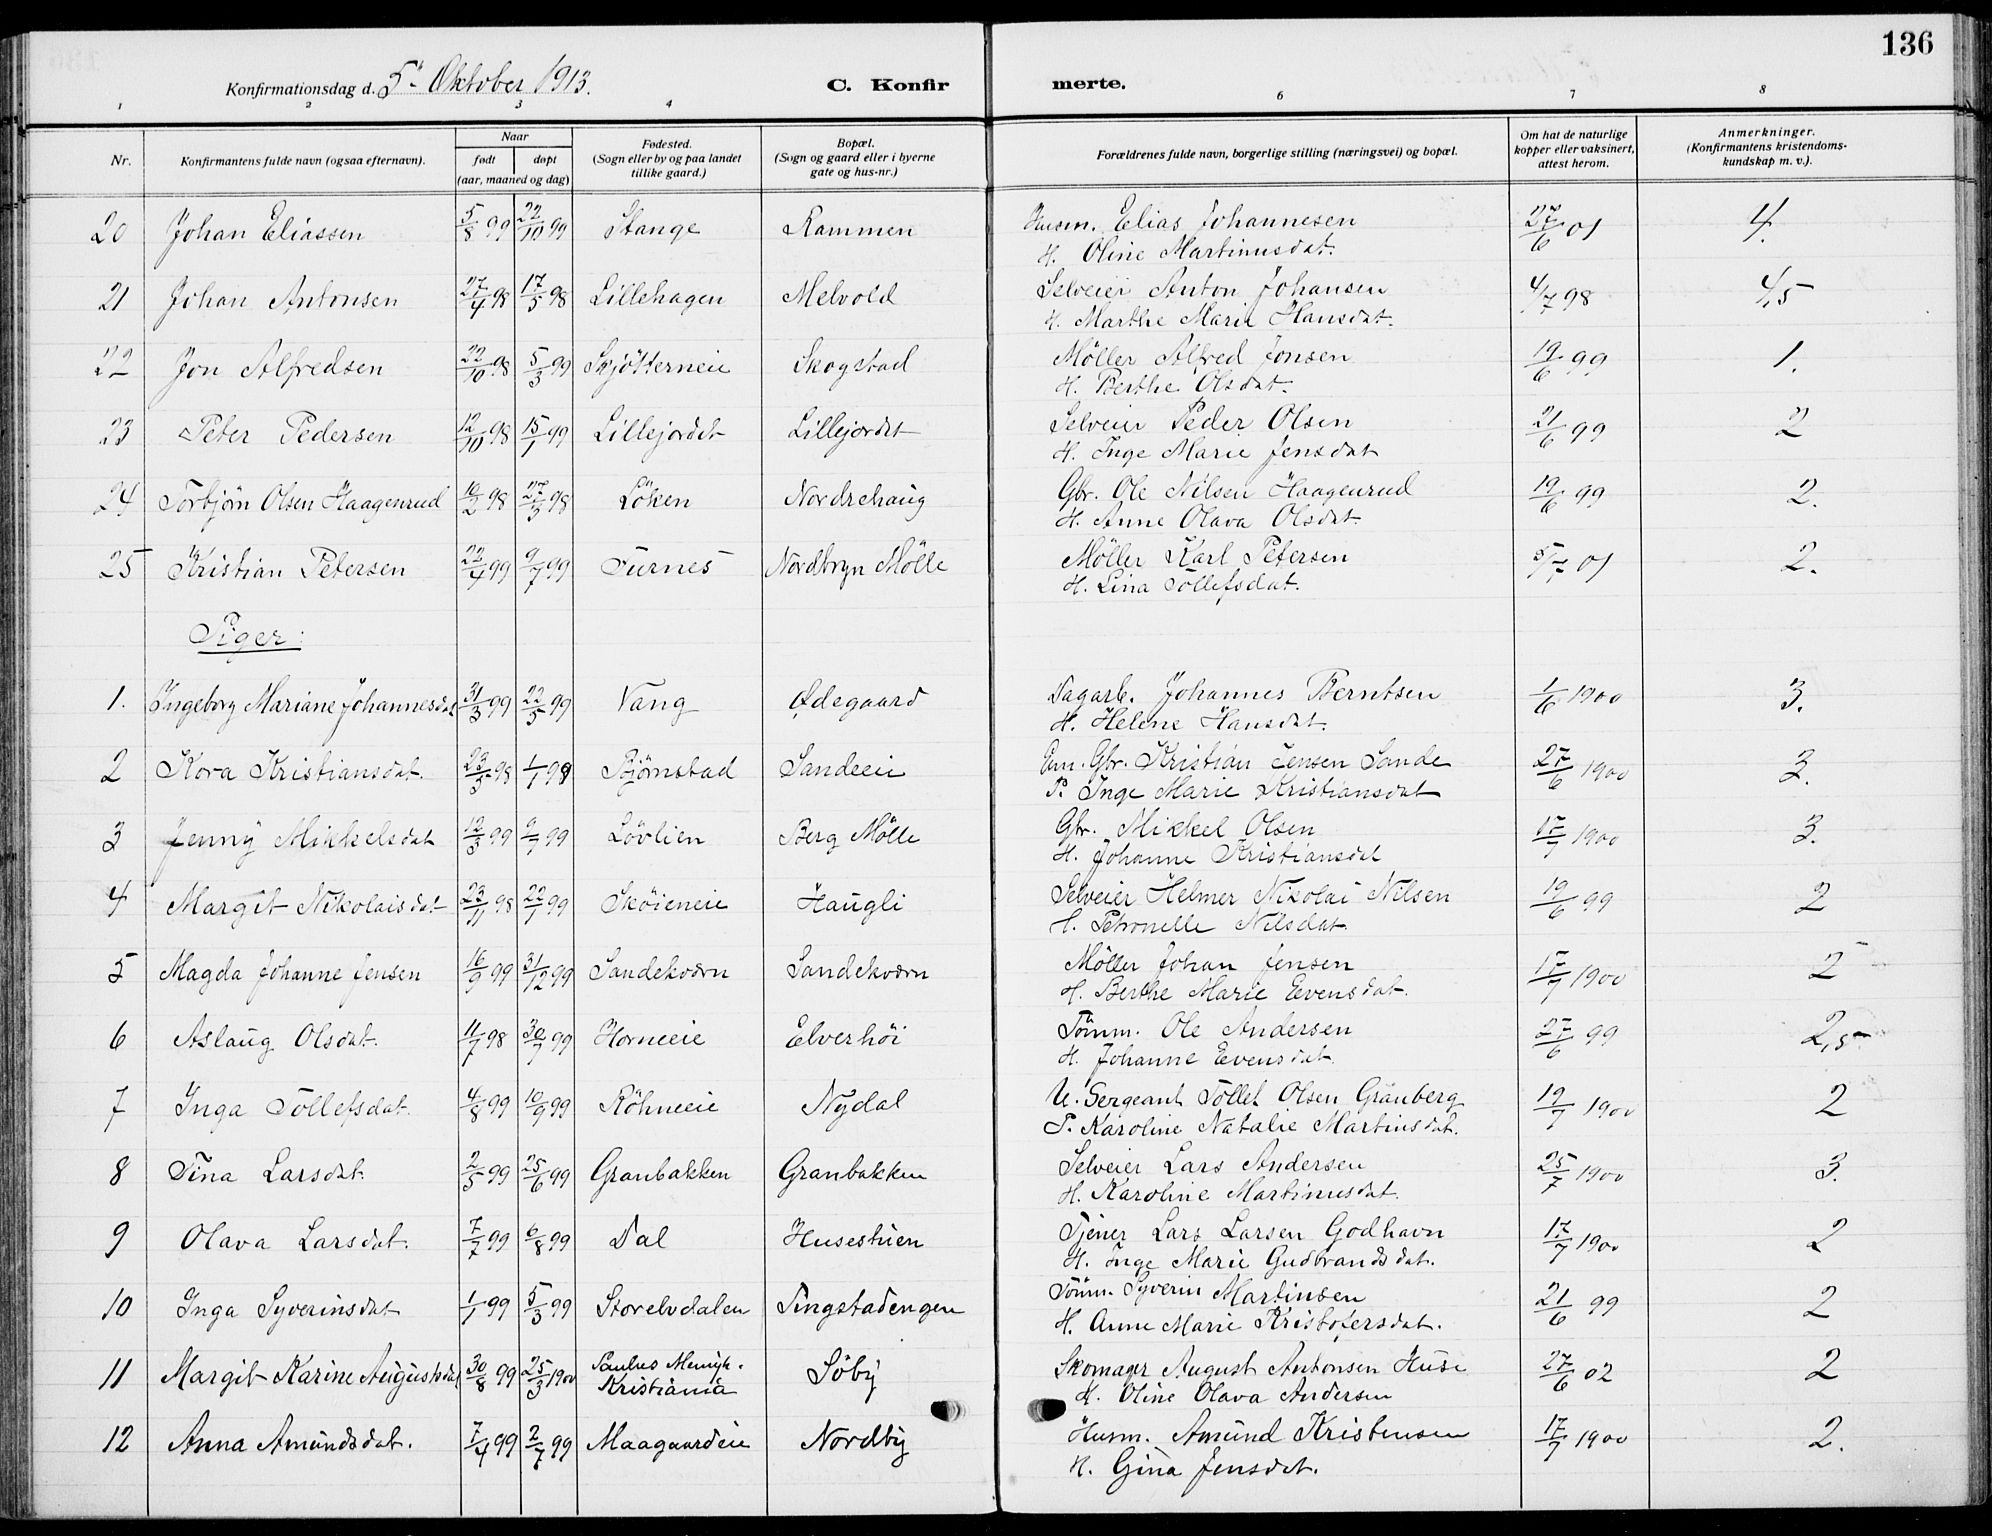 136
Konfirmationsdag d. 5' Oktober 1913. C. Konfirmerte.
1 2 3 4 6 7 8
Nr. Konfirmantens fulde navn (ogsaa efternavn). Naar født døpt (aar, maaned og dag) Fødested. (Sogn eller by og paa landet tillike gaard.) Bopæl. (Sogn og gaard eller i byerne gate og hus-nr.) Forældrenes fulde navn, borgerlige stilling (næringsvei) og bopæl. Om hat de naturlige kopper eller vaksinert, attest herom. Anmerkninger. (Konfirmantens kristendomskundskap m. v.).
20 Johan Eliassen 5/8 99 22/10 99 Stange Rammen Husm. Elias Johannesen 27/6 01 4.
H. Oline Martinusdat.
21 Johan Antonsen 27/4 98 17/5 98 Lillehagen Melvold Selveier Anton Johansen 4/7 98 4,5
H. Marthe Marie Hansdat.
22 Jon Alfredsen 22/10 98 5/3 99 Skjötterneie Skogstad Möller Alfred Jonsen 19/6 99 1.
H. Berthe Olsdat.
23 Peter Pedersen 12/10 98 15/1 99 Lillejordet Lillejordet Selveier Peder Olsen 21/6 99 2
H. Inge Marie Jensdat
24 Torbjörn Olsen Haagenrud 10/2 98 27/3 98 Löken Nordrehaug Gbr. Ole Nilsen Haagenrud 19/6 99 2.
H. Anne Olava Olsdat.
25 Kristian Petersen 22/4 99 9/7 99 Furnes Nordbryn Mölle Möller Karl Petersen 5/7 01 2.
H. Lina Tollefsdat.
Piger:
1. Ingeborg Mariane Johannesdat 31/3 99 22/5 99 Vang Ødegaard Dagarb. Johannes Berntsen 1/6 1900 3.
H. Helene Hansdat.
2 Kora Kristiansdat. 23/5 98 1/1 99 Bjørnstad Sandeeie Gbr. Kristian Jensen Sande 27/6 1900 3.
P. Inge Marie Kristiansdat
3 Jenny Mikkelsdat 12/3 99 9/7 99 Lövlien Berg Mölle Gbr. Mikkel Olsen 17/7 1900 3.
H. Johanne Kristiansdat
4 Margit Nikolaisdat 23/11 98 22/1 99 Sköieneie Haugli Selveier Helmer Nikolai Nilsen 19/6 99 2
H. Petronelle Nilsdat.
5 Magda Johanne Jensen 16/9 99 31/12 99 Sandekværn Sandekværn Möller Johan Jensen 17/7 1900 2
H. Berthe Marie Evensdat.
6 Aslaug Olsdat. 11/7 98 30/7 99 Horneeie Elverhöi Tömm. Ole Andersen 27/6 99 2,5
H. Johanne Evensdat.
7 Inga Tollefsdat. 4/8 99 10/9 99 Röhneeie Nydal U. Sergeant Tollef Olsen Granberg 19/7 1900 2
P. Karoline Natalie Martinsdat.
8 Tina Larsdat. 2/5 99 25/6 99 Granbakken Granbakken Selveier Lars Andersen 25/7 1900 3.
H. Karoline Martinusdat.
9 Olava Larsdat. 7/7 99 6/8 99 Dal Husestuen Tjener Lars Larsen Godhavn 17/7 1900 2
H. Inge Marie Gudbrandsdat.
10 Inga Syverinsdat 1/1 99 5/3 99 Storelvdalen Tingstadengen Tömm. Syverin Martinsen 21/6 99 2
H. Anne Marie Kristofersdat.
11 Margit Karine Augustsdat 30/8 99 25/3 1900 Paulus Menigh. Kristiania Söby Skomager August Antonsen Huse 27/6 02 2
H. Oline Olava Andersen
12 Anna Amundsdat. 7/4 99 2/7 99 Maagaardeie Nordby Husm. Amund Kristensen 17/7 1900 2.
H. Gina Jensdat.